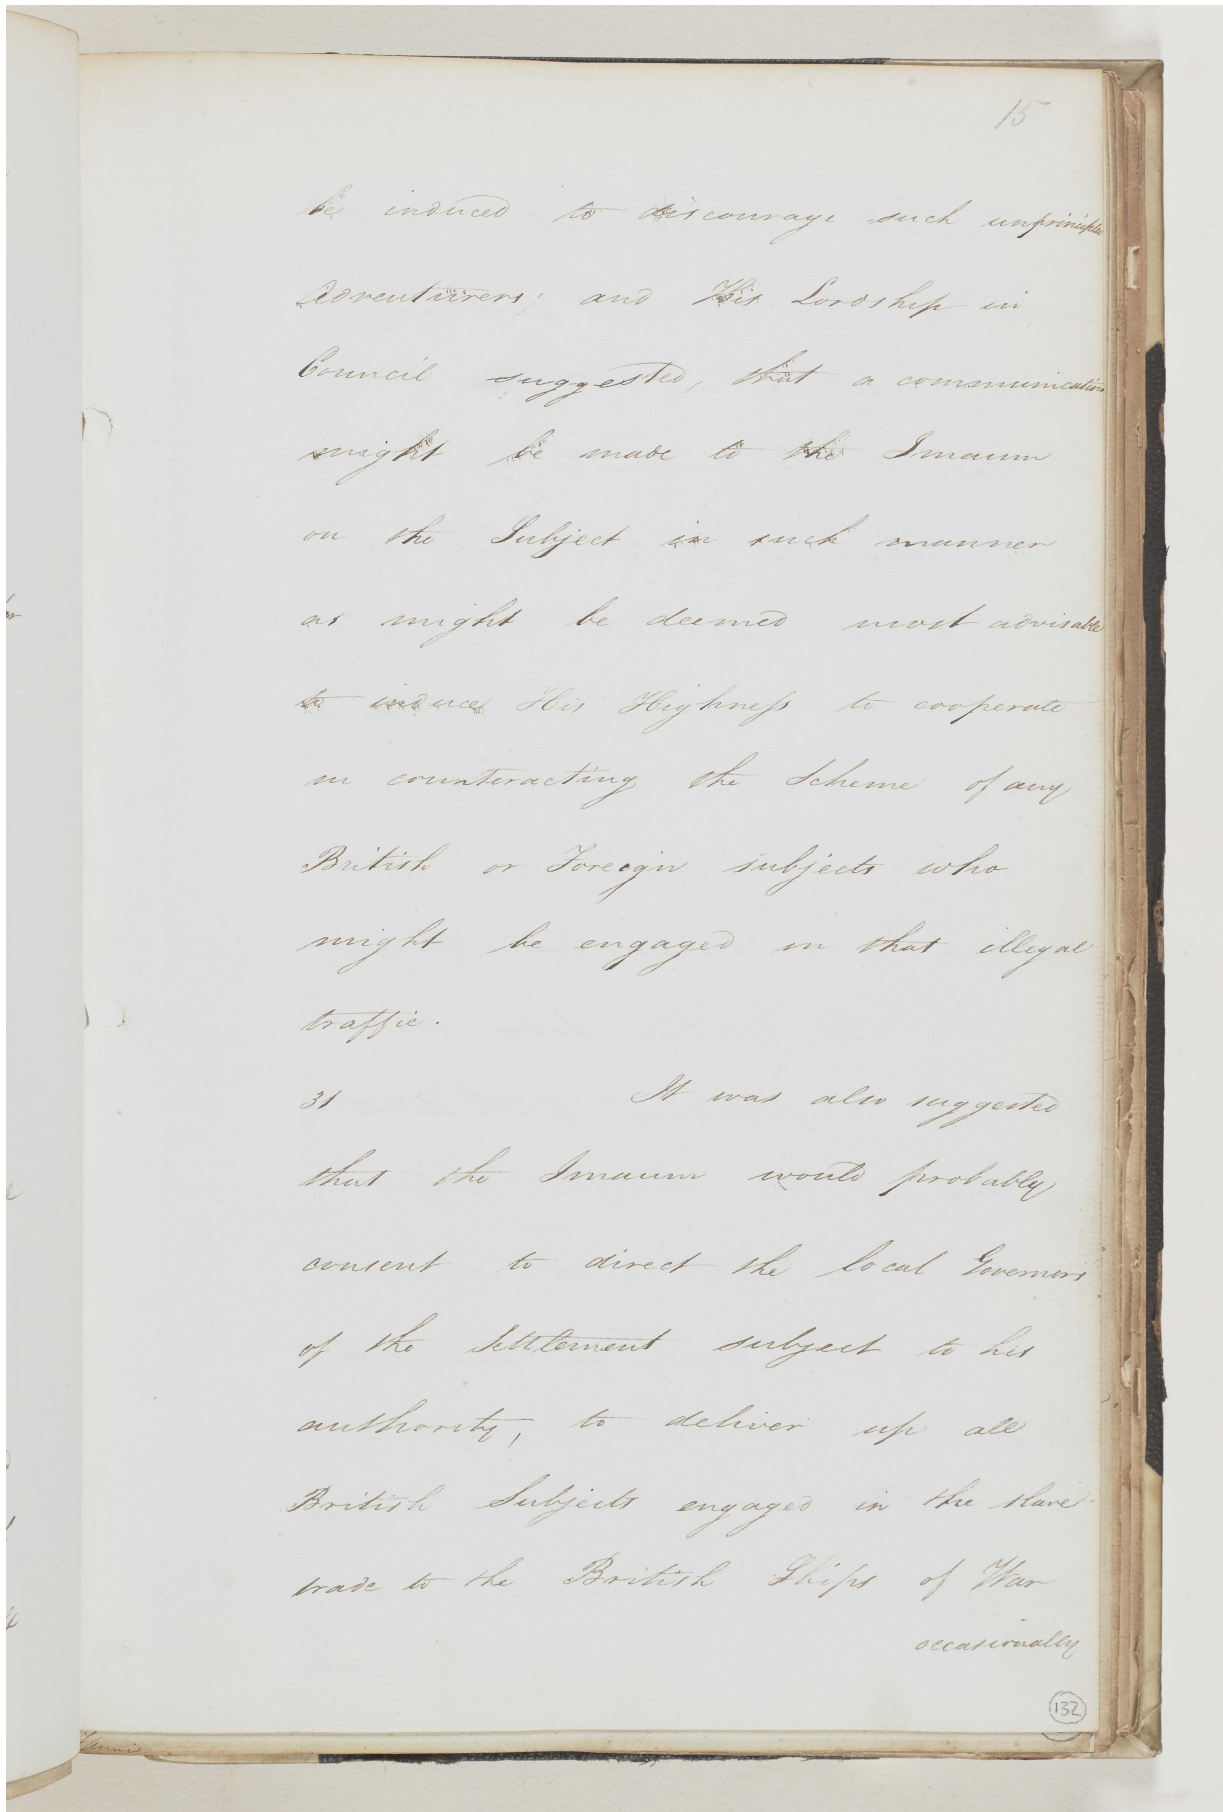 15
be induced to discourage such unprincipled
Adventurers; and His Lordship in
Council suggested, that a communication
might be made to the Imaum
on the Subject in such manner
as might be deemed most advisable
to induce His Highness to cooperate
in counteracting the Scheme of any
British or Foreign subjects who
might be engaged in that illegal
traffic.
31 It was also suggested
that the Imaum would probably
consent to direct the local Governors
of the Settlement subject to his
authority, to deliver up all
British Subjects engaged in the slave
trade to the British Ships of War
occasionally
132